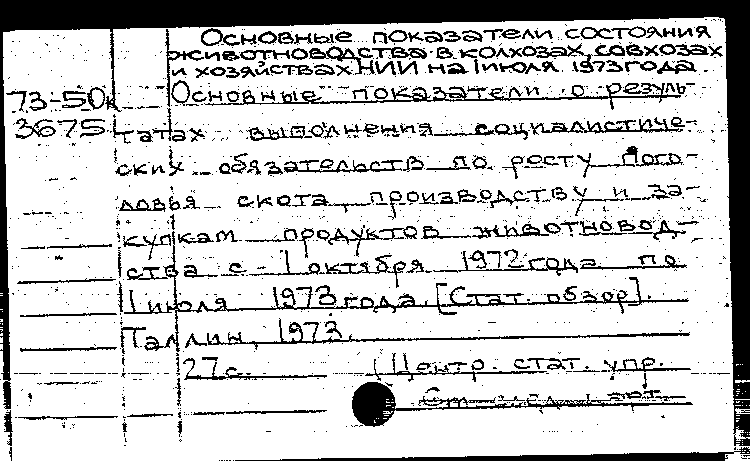 Основные показатели состояния
животноводства в колхозах, совхозах
и хозяйствах НИИ на 1 июля 1973 года
73-50к Основные показатели о резуль-
3675 татах выполнения социалистиче-
ских обязательств по росту пого-
ловья скота, производству и за-
купкам продуктов животновод-
ства с 1 октября 1972 года по
1 июля 1973 года. [Стат. обзор].
Таллин, 1973.
27 с. (Центр. стат. упр.
См. след. карт.